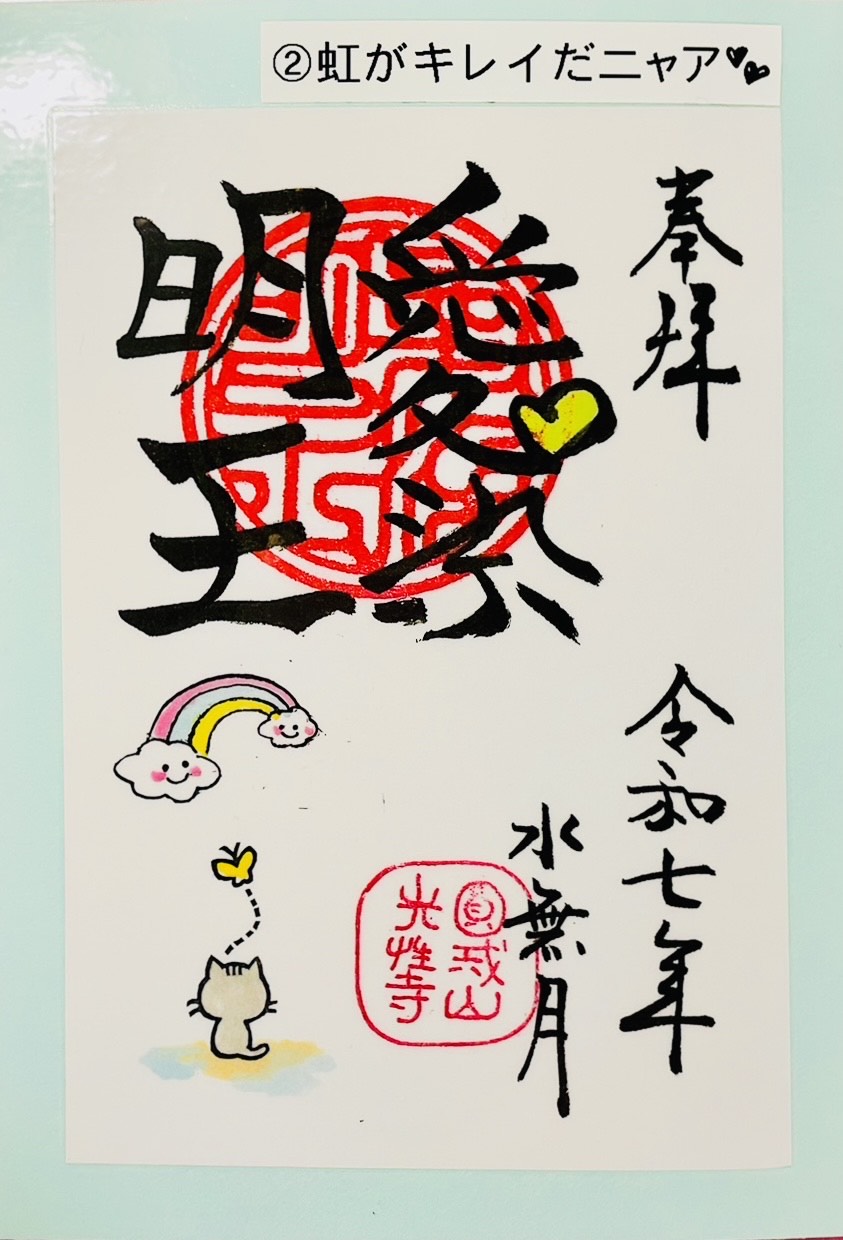 ②虹がキレイだニャア
奉拝
愛染
明王
令和七年
水無月
圓戒山
光性寺